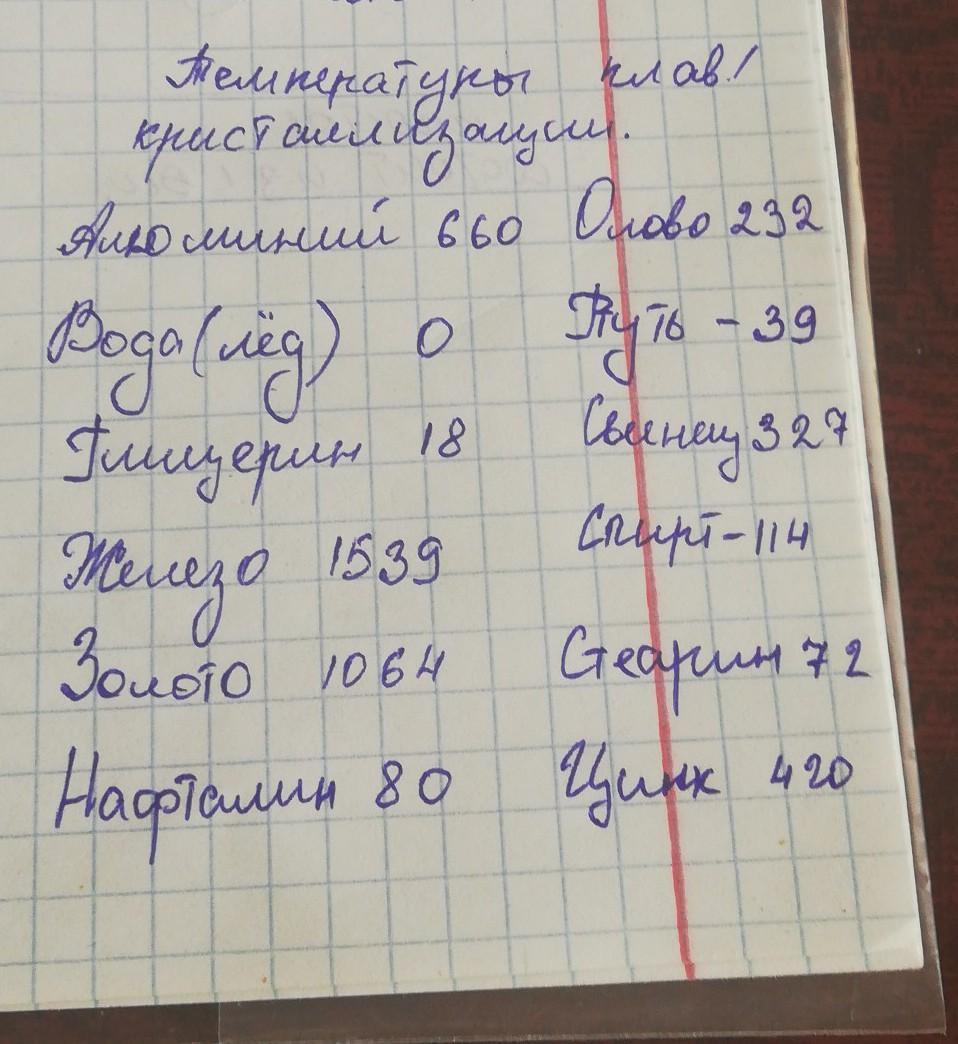 Температуры плав./
кристаллизации.
Алюминий 660 Олово 232
Вода (лёд) 0 Ртуть - 39
Глицерин 18 Свинец 327
Железо 1539 Спирт - 114
Золото 1064 Стеарин 72
Нафталин 80 Цинк 420